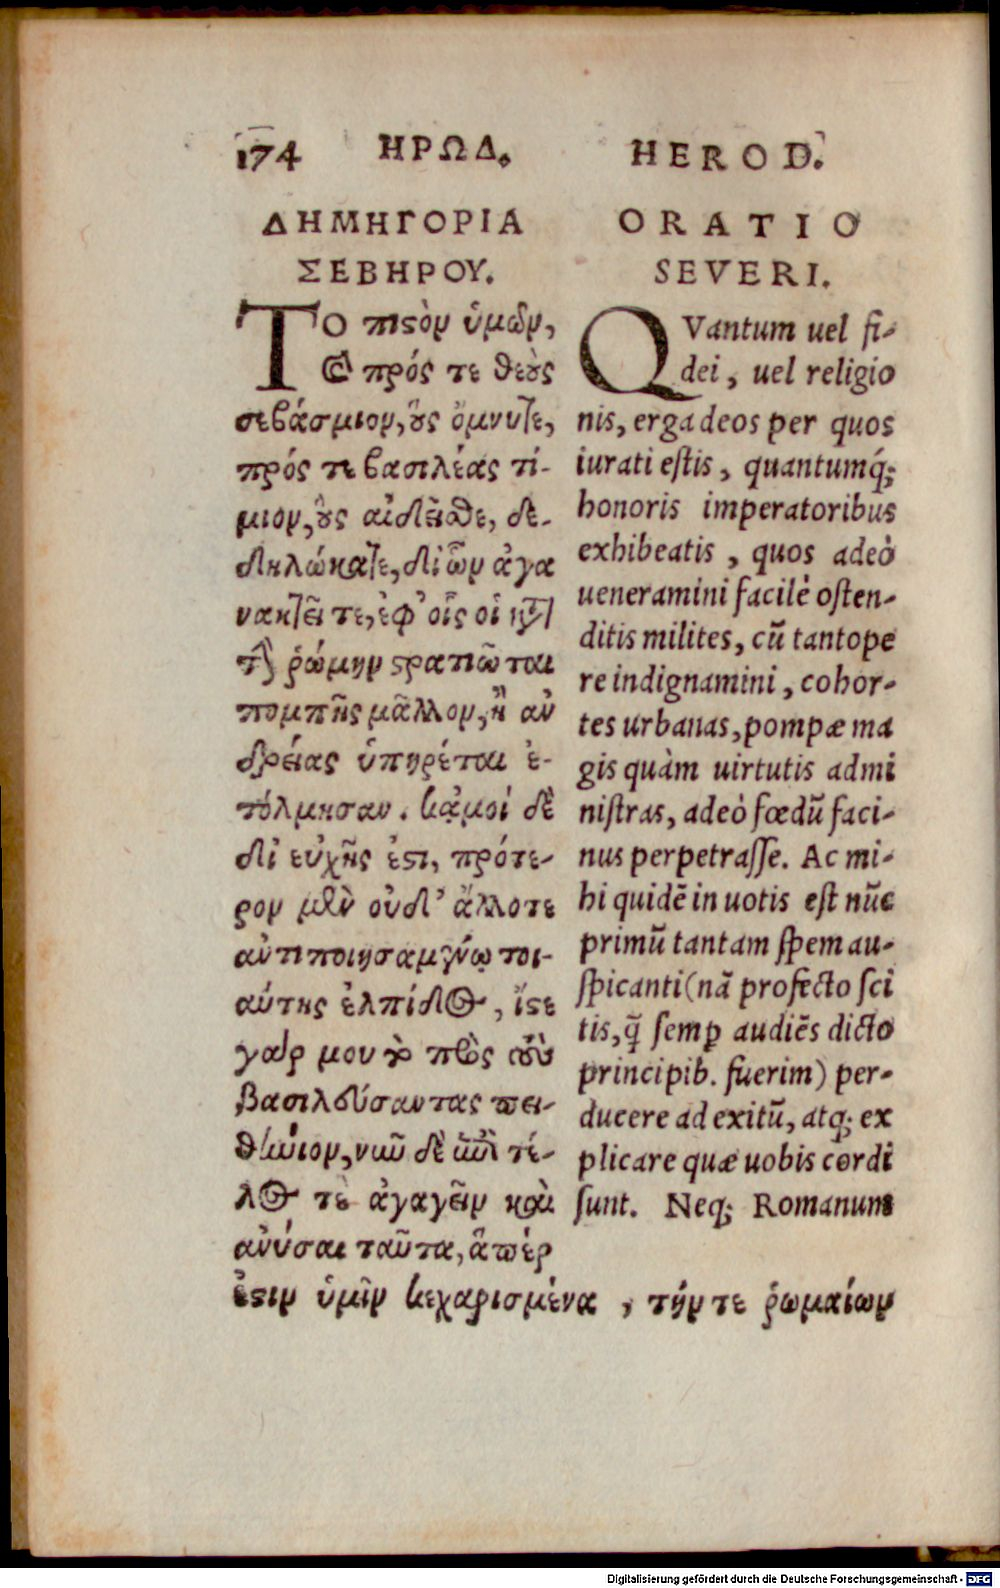 174 ΗΡΩΔ.
ΔΗΜΗΓΟΡΙΑ
ΣΕΒΗΡΟΥ.
ΤΟ πιϛὸν ὑμῶν,
καὶ πρός τε θεοὺς
σεβάσμιον, οὓς ὄμνυτε,
πρός τε βασιλέας τί-
μιον, οὓς αἰδεῖσθε, δε-
δηλώκατε, δι' ὧν ἀγα
νακτεῖτε, ἐφ' οἷς οἱ κατὰ
τὴν ῥώμην ϛρατιῶται
πομπῆς μᾶλλον, ἢ ἀν
δρείας ὑπηρέται ἐ-
τόλμησαν. κἀμοὶ δὲ
δι' εὐχῆς ἐϛι, πρότε-
ρον μὲν οὐδ' ἄλλοτε
ἀντιποιησαμένῳ τοι-
αύτης ἐλπίδος, ἴϛε
γάρ μου τὸ πρὸς τοὺς
βασιλεύσαντας πει-
θήνιον, νῦν δὲ ἐπὶ τέ-
λος τὲ ἀγαγεῖν καὶ
ἀνύσαι ταῦτα, ἅπερ
ἐϛιν ὑμῖν κεχαρισμένα, τήν τε ῥωμαίων
HEROD.
ORATIO
SEVERI.
QVantum uel fi-
dei, uel religio
nis, erga deos per quos
iurati estis, quantumq́;
honoris imperatoribus
exhibeatis, quos adeò
ueneramini facilè osten-
ditis milites, cū tantope
re indignamini, cohor-
tes urbanas, pompæ ma
gis quàm uirtutis admi
nistras, adeò fœdū faci-
nus perpetrasse. Ac mi-
hi quidē in uotis est nūc
primū tantam spem au-
spicanti (nā profecto sci
tis, q̄ semꝑ audiēs dicto
principib. fuerim) per-
ducere ad exitū, atq; ex
plicare quæ uobis cordi
sunt. Neq; Romanum
Digitalisierung gefördert durch die Deutsche Forschungsgemeinschaft - DFG